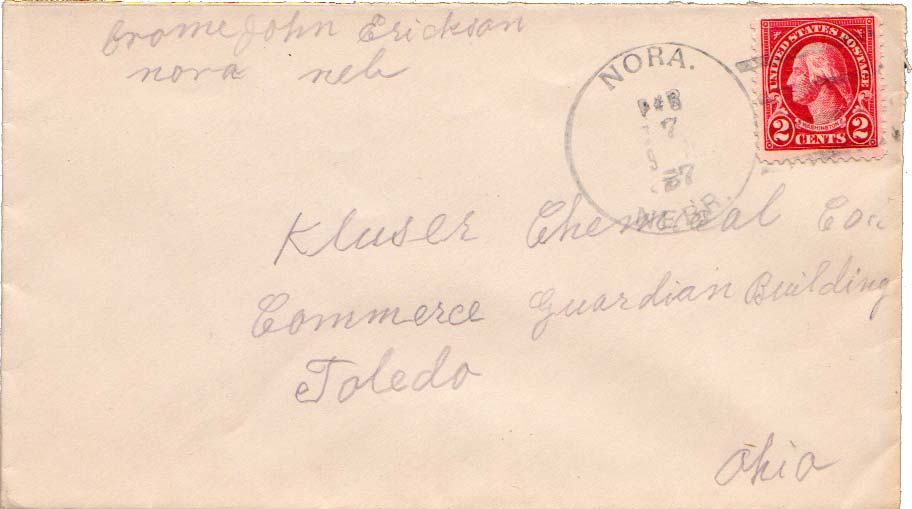 From John Erickson
nora neb
NORA.
7
NEBR.
UNITED STATES POSTAGE
WASHINGTON
2 CENTS 2
Kluser Chemical Co
Commerce Guardian Building
Toledo
Ohio